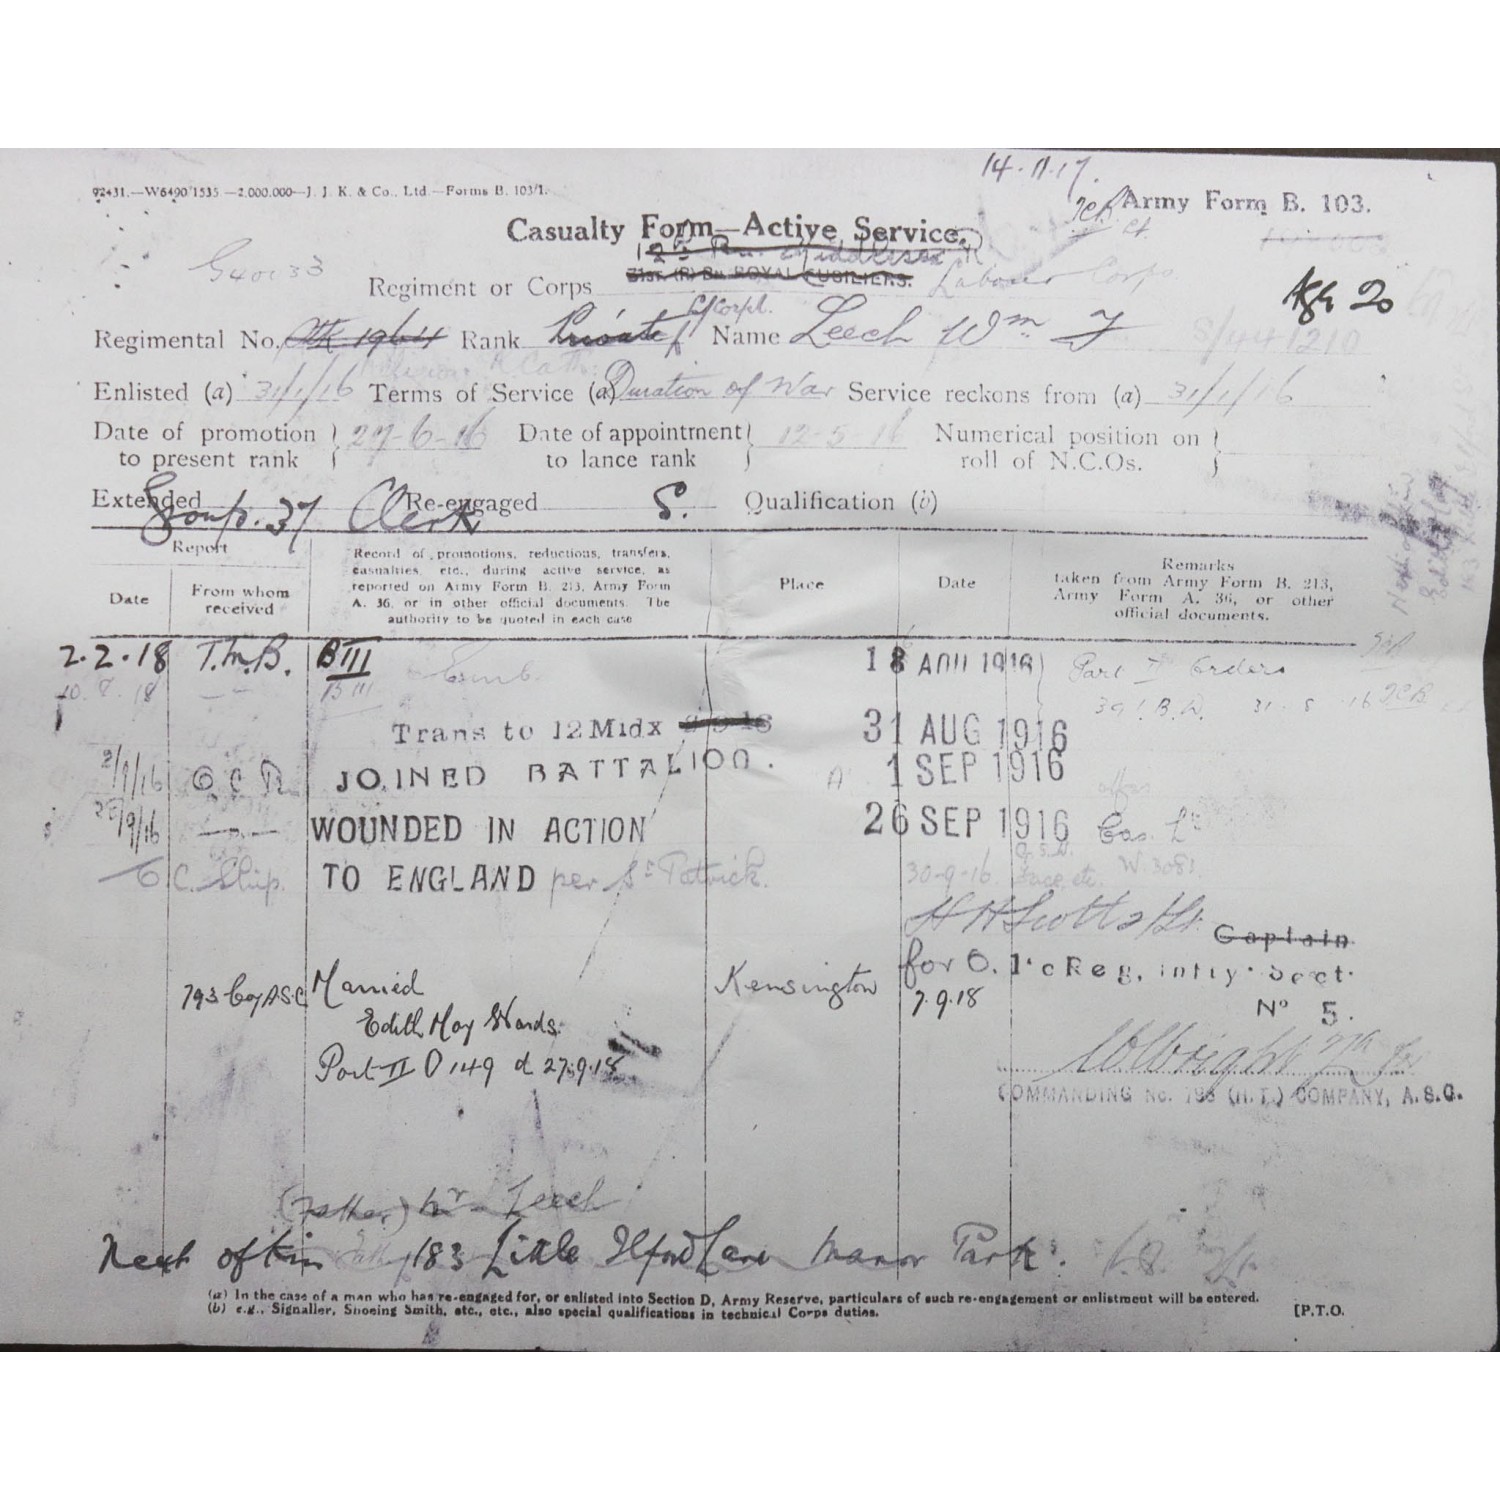 14.11.17.
92431.—W6490/1535.—2,000,000—J. J. K. & Co., Ltd.—Forms B. 103/1.
Army Form B. 103.
Casualty Form—Active Service.
12th Bn. Middlesex R
G40133
Regiment or Corps 31st. (R) Bn ROYAL FUSILIERS. Labour Corps
Age 20
L/Corpl.
Regimental No. 1964 Rank Private Name Leech Wm J S/441210
Enlisted (a) 31/1/16 Terms of Service (a) Duration of War Service reckons from (a) 31/1/16
Date of promotion to present rank } 27-6-16 Date of appointment to lance rank } 12-5-16 Numerical position on roll of N.C.Os. }
Extended Re-engaged S. Qualification (b)
Group. 37 Clerk
Report
Date
From whom received
Record of promotions, reductions, transfers, casualties, etc., during active service, as reported on Army Form B. 213, Army Form A. 36, or in other official documents. The authority to be quoted in each case
Place
Date
Remarks taken from Army Form B. 213, Army Form A. 36, or other official documents.
2.2.18 T.M.B. BIII
Emb. 18 AUG 1916 Part II Orders
10.8.18 — — BIII
31-8-16
Trans to 12 Midx 31 AUG 1916
2/9/16 O C Bn JOINED BATTALION. 1 SEP 1916
28/9/16 —"— WOUNDED IN ACTION 26 SEP 1916 Cas. Lt
O C. Ship. TO ENGLAND per St Patrick. 30-9-16 face etc. W 3083
H H Scott 2/Lt. Captain
for O. i/c Reg, Inf'y. Sect.
No 5.
793 Coy A.S.C Married Kensington 7.9.18
Edith May Wards.
Part II O 149 d 27.9.18
COMMANDING No. 793 (H.T.) COMPANY, A.S.C.
(Father) Mr Leech
Next of Kin 183 Little Ilford Lane Manor Park.
(a) In the case of a man who has re-engaged for, or enlisted into Section D, Army Reserve, particulars of such re-engagement or enlistment will be entered.
(b) e.g., Signaller, Shoeing Smith, etc., etc., also special qualifications in technical Corps duties.
[P.T.O.